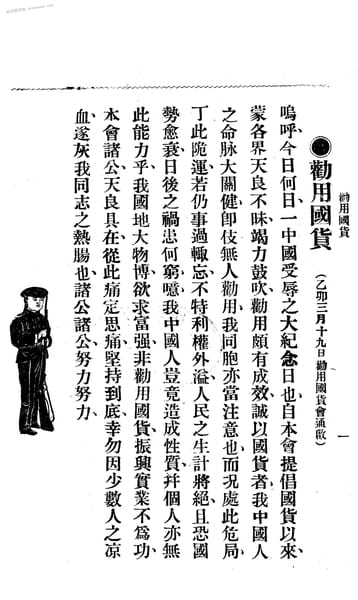 勸用國貨
一
●勸用國貨（乙卯三月十九日勸用國貨會通啟）
嗚呼、今日何日、一中國受辱之大紀念日也、自本會提倡國貨以來、
蒙各界天良不昧、竭力鼓吹、勸用頗有成效、誠以國貨者、我中國人
之命脉大關健、卽伎無人勸用、我同胞亦當注意也、而况處此危局、
丁此陁運、若仍事過輙忘、不特利權外溢、人民之生計將絕、且恐國
勢愈衰、日後之禍患何窮、噫、我中國人豈竟造成性質、幷個人亦無
此能力乎、我國地大物博、欲求富强、非勸用國貨、振興實業不爲功、
本會諸公、天良具在、從此痛定思痛、堅持到底、幸勿因少數人之凉
血、遂灰我同志之熱腸也、諸公諸公、努力努力、